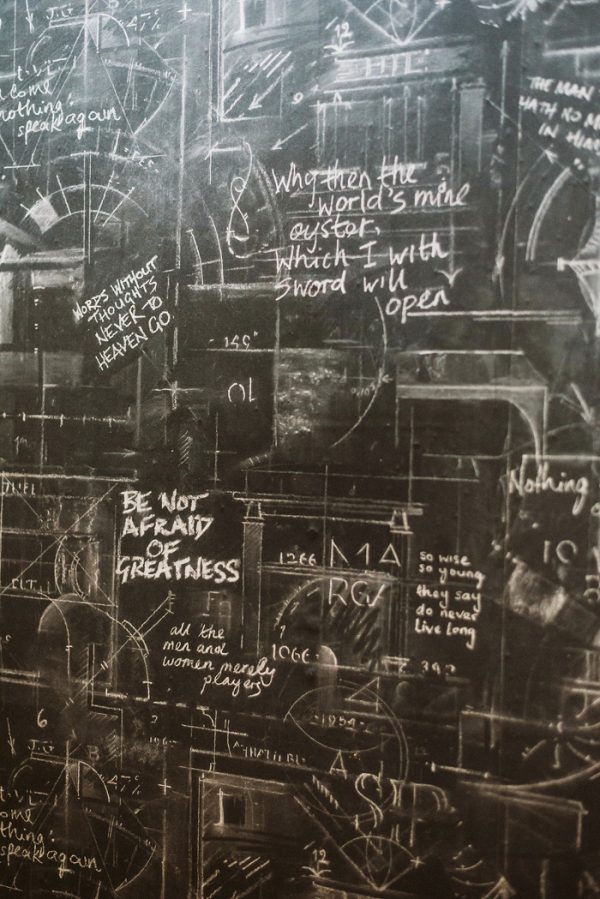 come
nothing:
speak again
12
9
THE MAN
HATH NO M
IN HIM
Why then the
world's mine
oyster,
Which I with
sword will
open
WORDS WITHOUT
THOUGHTS
NEVER TO
HEAVEN GO
Nothing
BE NOT
AFRAID
OF
GREATNESS
1266
so wise
so young
they say
do never
live long
all the
men and
women merely
players
1066
392
1954
6
J.G
B
A
thing:
speak again
12